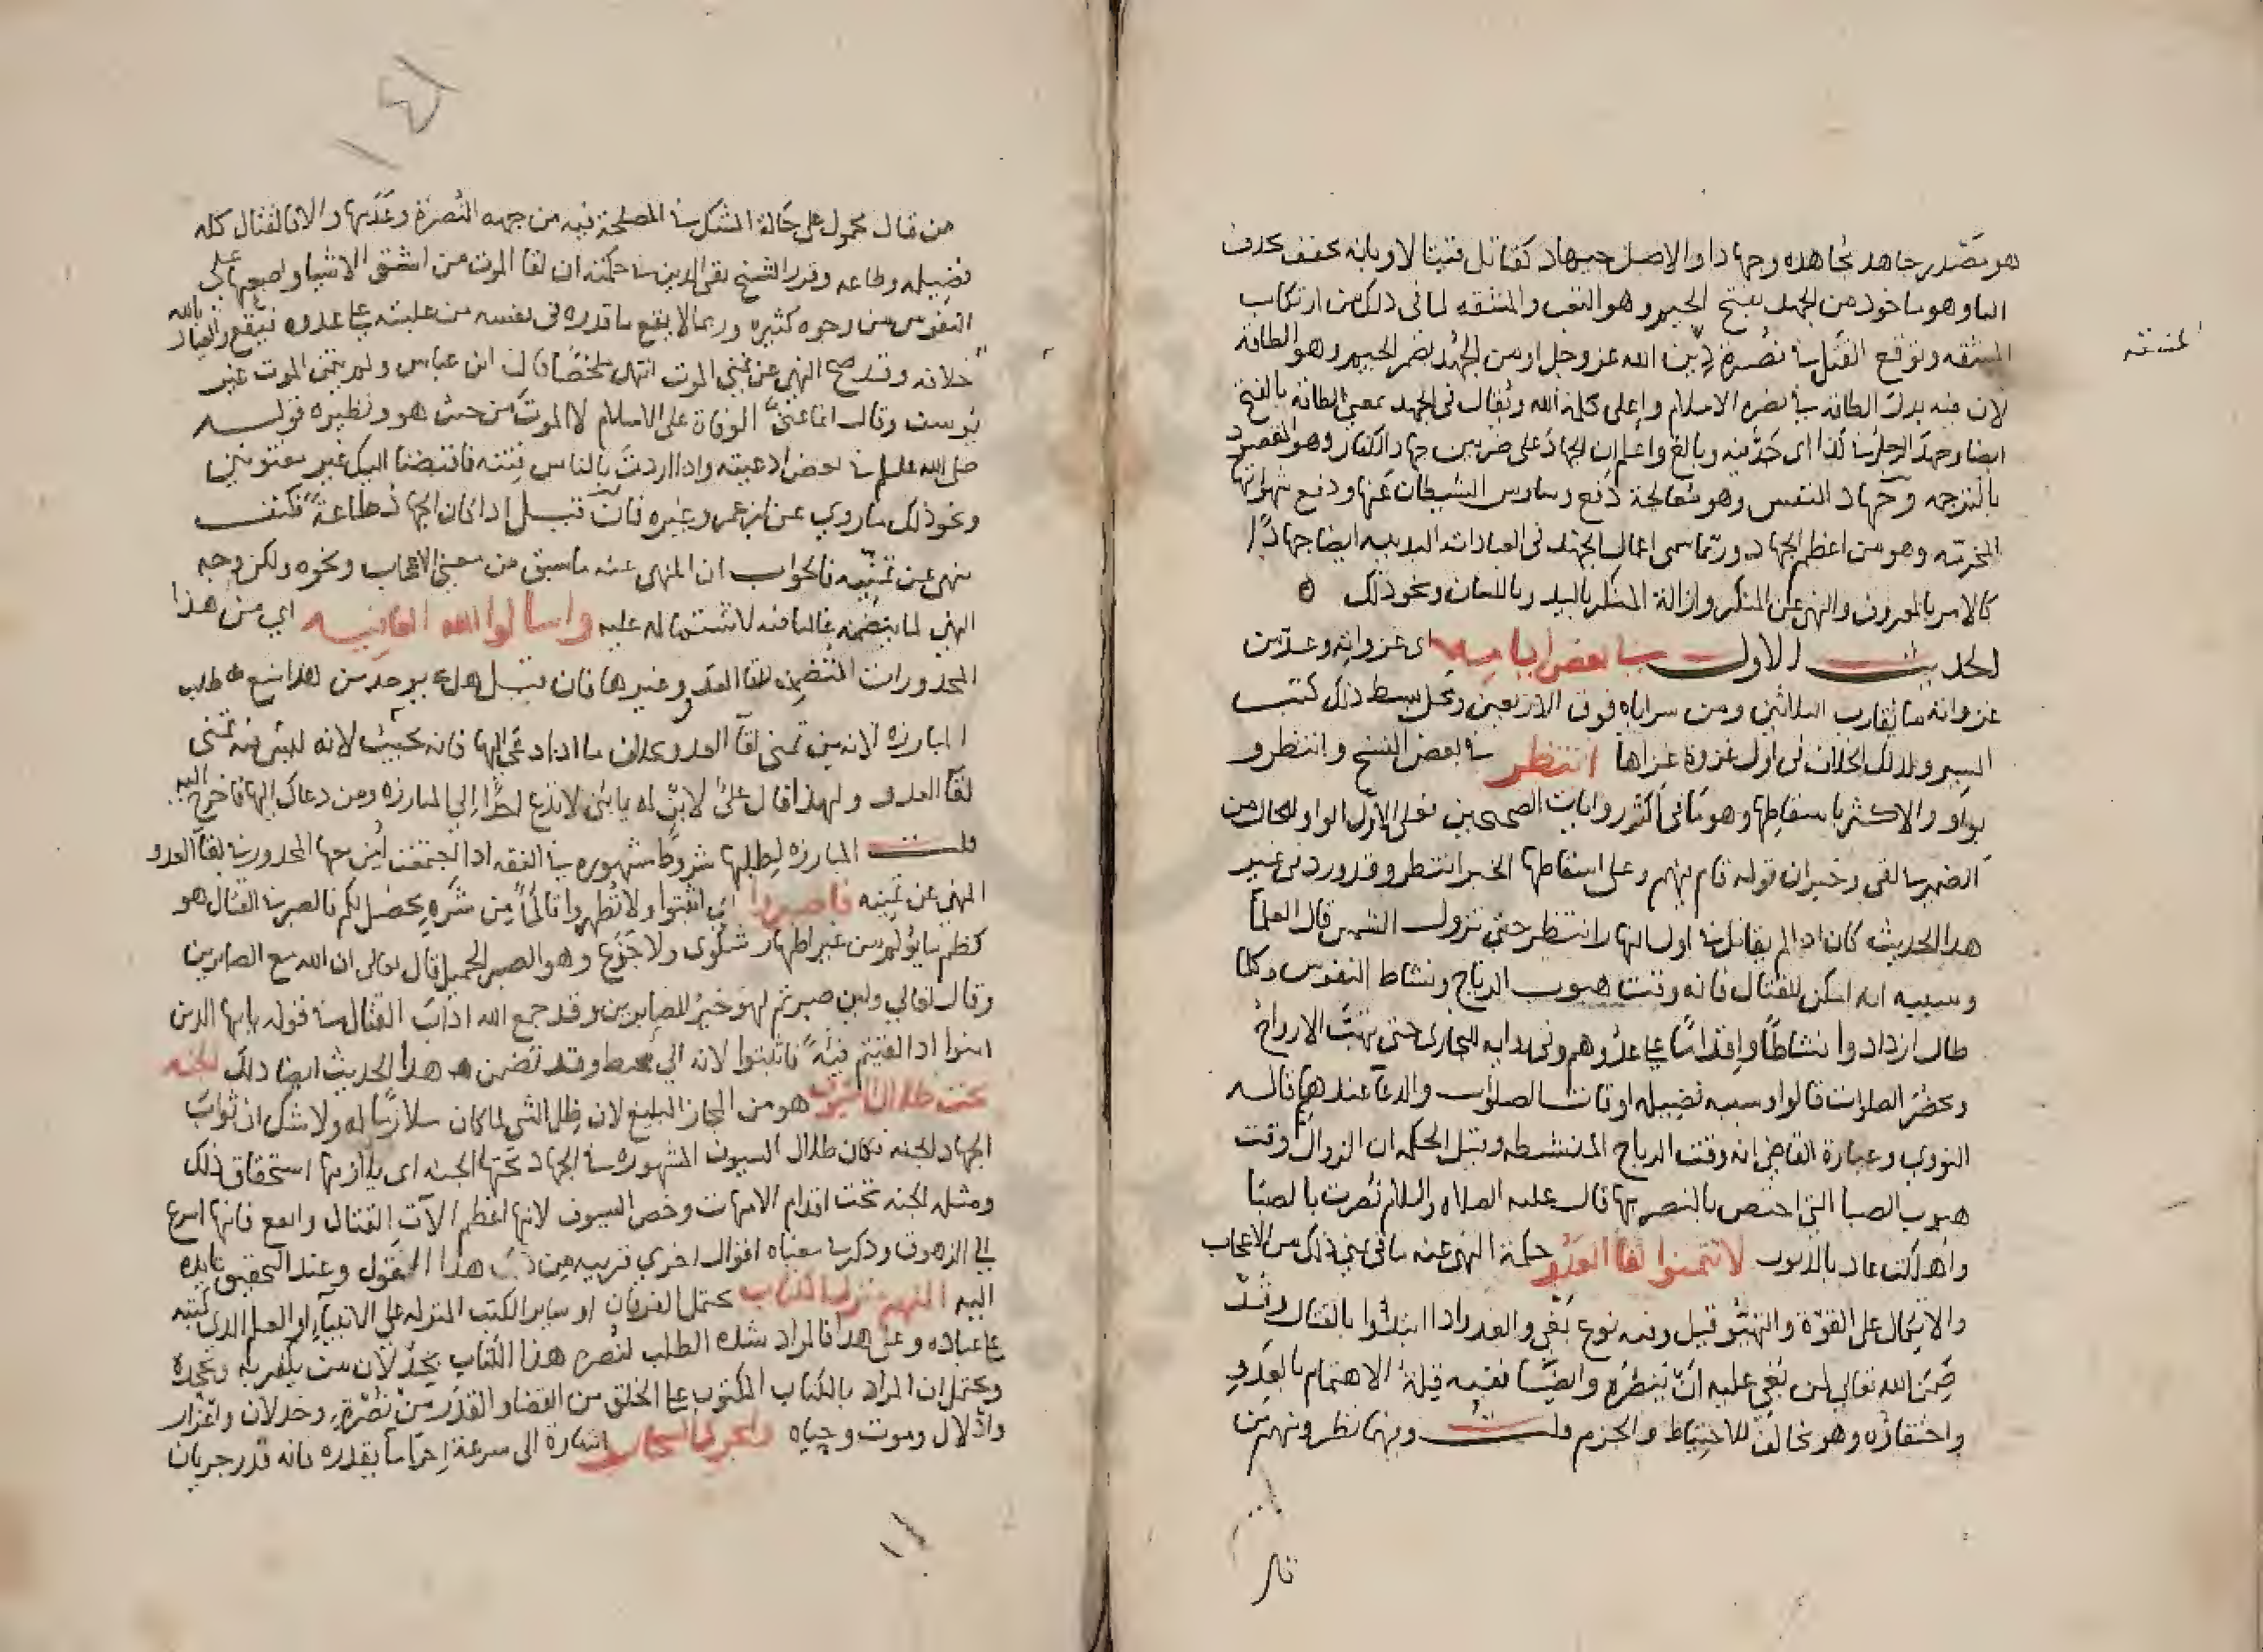 هو مصدر جاهد مجاهدة وجهادا والاصل جيهاد كقاتل قيتالا وبابه مخفف بحذف
اليا وهو ماخوذ من الجهد بفتح الجيم وهو التعب والمشقه لما في ذلك من ارتكاب
المشقه وتوقع القتل في نصرة دين الله عز وجل او من الجهد بضم الجيم وهو الطاقة
المشقه
لان فيه بذل الطاقة في نصره الاسلام واعلى كلمة الله ويقال في الجهد بمعنى الطاقة بالفتح
ايضا وجهد الرجل في كذا اي جد فيه وبالغ واعلم ان الجهاد على ضربين جهاد الكفار وهو المقصود
بالترجمه وجهاد النفس وهو معالجة دفع وساوس الشيطان عنها ودفع شهواتها
المحرمه وهو من اعظم الجهاد وربما سمي اعمال الجهد في العبادات البدنيه ايضا جهادا
كالامر بالمعروف والنهي عن المنكر وازالة المنكر باليد وباللسان ونحو ذلك
الحديث الاول في بعض ايامه اي غزواته وعد من
غزواته ما يقارب الثلاثين ومن سراياه فوق الاربعين ومحل بسط ذلك كتب
السير ولذلك الخلاف في اول غزوة غزاها انتظر في بعض النسخ وانتظر و
بواو والاكثر باسقاطها وهو ما في اكثر روايات الصحيحين فعلى الاول الواو للحال من
الضمير في لقي وخبر ان قوله قام فيهم وعلى اسقاطها الخبر انتظر وقد ورد في غير
هذا الحديث كان اذا لم يقاتل في اول النهار انتظر حتى تزول الشمس قال العلما
وسببه انه امكن للقتال فانه وقت هبوب الرياح ونشاط النفوس وكلما
طال ازدادوا نشاطا واقداما على عدوهم وفي رواية البخاري حتى تهب الارواح
وتحضر الصلوات قالوا وسببه فضيلة اوقات الصلوات والدعا عندها قاله
النووي وعبارة القاضي انه وقت الرياح المنشطه وقيل الحكمه ان الزوال وقت
هبوب الصبا التي اختص بالنصر بها قال عليه الصلاه والسلام نصرت بالصبا
واهلكت عاد بالدبور لا تتمنوا لقا العدو حكمة النهي عنه ما في ذلك من الاعجاب
والاتكال على القوة والتهيؤ قيل وفيه نوع بغي والعدو اذا ابتدئوا بالقتال وقد
ضمن الله تعالى لمن بغي عليه ان ينصره وايضا ففيه قلة الاهتمام بالعدو
واحتقاره وهو مخالف للاحتياط والحزم قلت وفيهما نظر ومنهم من
من قال محمول على حالة الشك في المصلحة فيه من جهه النصره وعدمها والا فالقتال كله
فضيله وطاعه وقرر الشيخ تقي الدين في حكمته ان لقا الموت من اشق الاشيا واصعبها على
النفوس من وجوه كثيره وربما لا يقع ما قدره في نفسه من غلبته على عدوه فيقع والعياذ بالله
خلافه وقد صح النهي عن تمني الموت انتهى ملخصا قال ابن عباس ولم يتمن الموت غير
يوسف وقال انما عنى الوفاة على الاسلام لا الموت من حيث هو ونظيره قوله
صلى الله عليه وسلم في بعض ادعيته واذا اردت بالناس فتنه فاقبضنا اليك غير مفتونين
ونحو ذلك ما روي عن ابن عمر وغيره فان قيل اذا كان الجهاد طاعة فكيف
نهي عن تمنيه فالجواب ان المنهي عنه ما سبق من معنى الاعجاب ونحوه ولكن وجه
النهي لما يتضمنه غالبا منه لاشتماله عليه واسالوا الله العافيه اي من هذا
المحذورات المتضمنه للقا العدو وغيرها فان قيل هل يوخذ من هذا منع طلب
المبارزه لانه من تمنى لقا العدو بخلاف ما اذا دعي اليها فانه يجيب لانه ليس فيه تمني
لقا العدو ولهذا قال علي لابن له يا بني لا تدع احدا الى المبارزه ومن دعاك اليها فاخرج اليه
قلت المبارزه لطلبها شروط مشهوره في الفقه اذا اجتمعت امن معها المحذور في لقا العدو
المنهي عن تمنيه فاصبروا اي اثبتوا ولا تظهروا تالما من شره يحصل لكم فالصبر في القتال هو
كظم ما يؤلم من غير اظهار شكوى ولا جزع وهو الصبر الجميل قال تعالى ان الله مع الصابرين
وقال تعالى ولين صبرتم لهو خير للصابرين وقد جمع الله اداب القتال في قوله يايها الذين
امنوا اذا لقيتم فئة فاثبتوا لانه الي محيط وقد تضمن هذا الحديث ايضا ذلك الجنه
تحت ظلال السيوف هو من المجاز البليغ لان ظل الشي لما كان ملازما له ولا شك ان ثواب
الجهاد الجنه فكان ظلال السيوف المشهوره في الجهاد تحتها الجنه اي يلازمها استحقاق ذلك
ومثله الجنه تحت اقدام الامهات وخص السيوف لانها اعظم الات القتال وانفع فانها اسرع
الى الزهوق وذكر في معناه اقوال اخري قريبه من هذا القول وعند التحقيق عايده
اليه اللهم منزل الكتاب يحتمل القران او ساير الكتب المنزله على الانبيا او العلم الذي كتبه
على عباده وعلى هذا فالمراد شدة الطلب لنصره هذا الكتاب بخذلان من يكفر به ويجحده
ويحتمل ان المراد بالكتاب المكتوب على الخلق من القضا والقدر من نصرة وخذلان واعزاز
واذلال وموت وحياه ومجري السحاب اشارة الى سرعة اجرا ما يقدره فانه قدر جريان